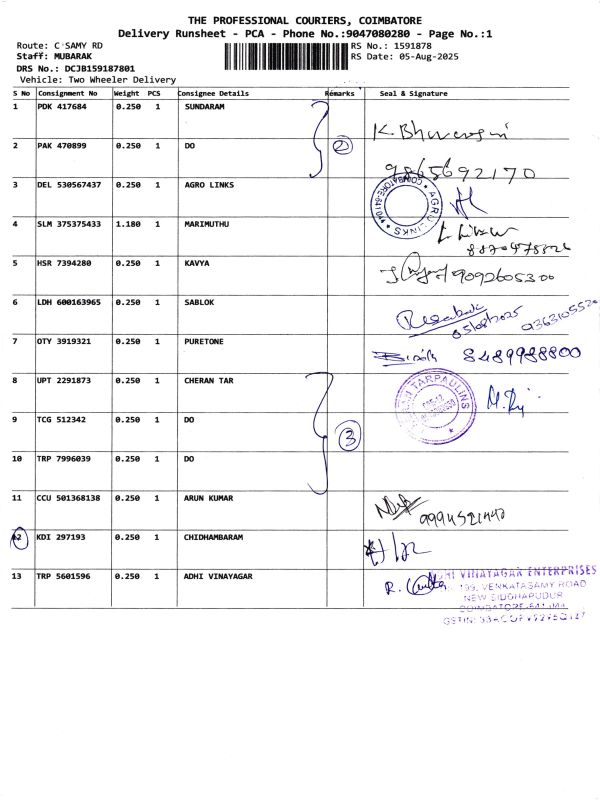 THE PROFESSIONAL COURIERS, COIMBATORE
Delivery Runsheet - PCA - Phone No.:9047080280 - Page No.:1
Route: C SAMY RD RS No.: 1591878
Staff: MUBARAK RS Date: 05-Aug-2025
DRS No.: DCJB159187801
Vehicle: Two Wheeler Delivery
S No Consignment No Weight PCS Consignee Details Remarks Seal & Signature
1 PDK 417684 0.250 1 SUNDARAM
2 PAK 470899 0.250 1 DO 2 9865692170
3 DEL 530567437 0.250 1 AGRO LINKS AGRO LINKS
4 SLM 375375433 1.180 1 MARIMUTHU
5 HSR 7394280 0.250 1 KAVYA 9092605300
6 LDH 600163965 0.250 1 SABLOK 05/08/2025 9363105520
7 OTY 3919321 0.250 1 PURETONE 8489988800
8 UPT 2291873 0.250 1 CHERAN TAR TARPAULINS
9 TCG 512342 0.250 1 DO 3
10 TRP 7996039 0.250 1 DO
11 CCU 501368138 0.250 1 ARUN KUMAR
12 KDI 297193 0.250 1 CHIDHAMBARAM
13 TRP 5601596 0.250 1 ADHI VINAYAGAR VINAYAGAR ENTERPRISES
199, VENKATASAMY ROAD
NEW SIDDHAPUDUR
COIMBATORE-641
GSTIN: